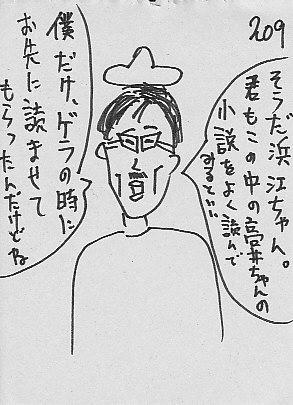 209
そうだ浜江ちゃん。
君もこの中の高井ちゃんの
小説をよく読んで
みるといい
僕だけ、ゲラの時に
お先に読ませて
もらったんだけどね